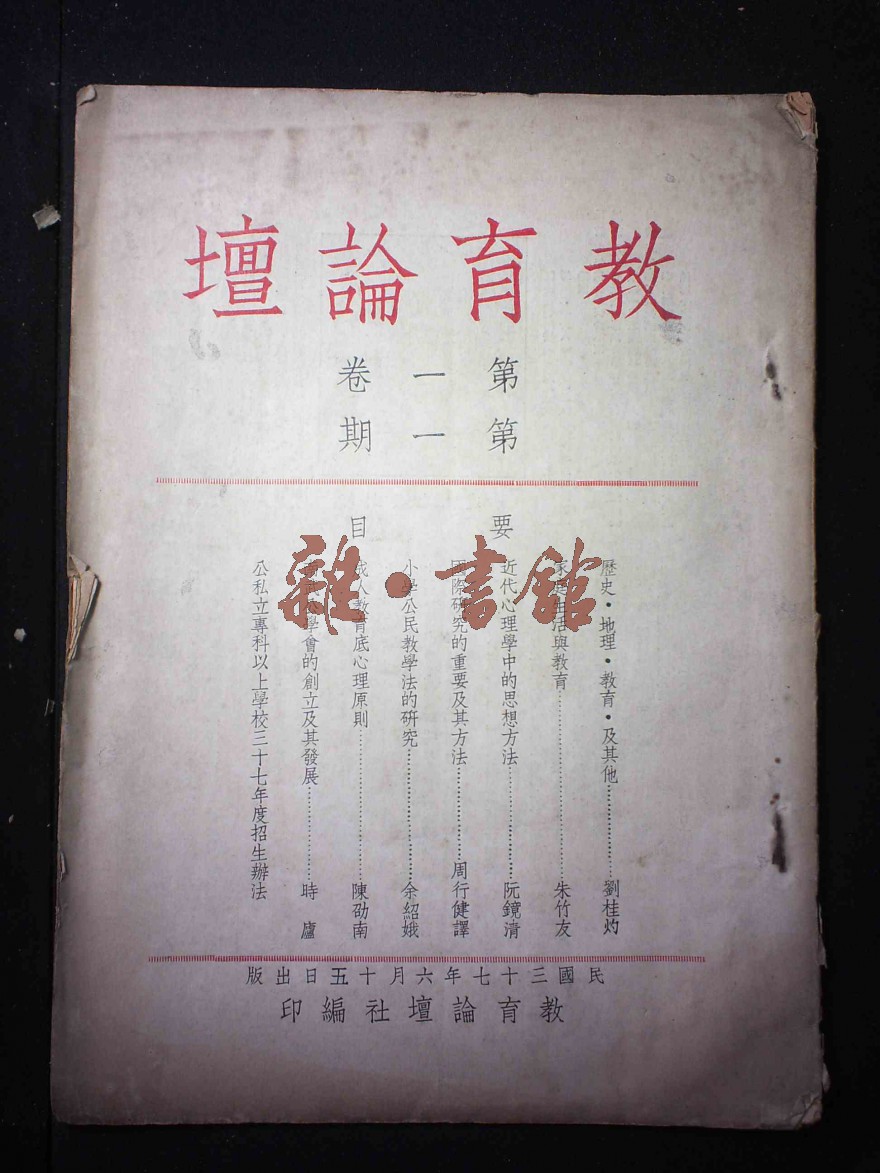 教育論壇
第一卷
第一期
要目
歷史・地理・教育・及其他……劉桂灼
家庭生活與教育……朱竹友
近代心理學中的思想方法……阮鏡清
國際研究的重要及其方法……周行健譯
小學公民教學法的研究……余紹娥
成人教育底心理原則……陳劭南
學會的創立及其發展……時廬
公私立專科以上學校三十七年度招生辦法
民國三十七年六月十五日出版
教育論壇社編印
雜・書館